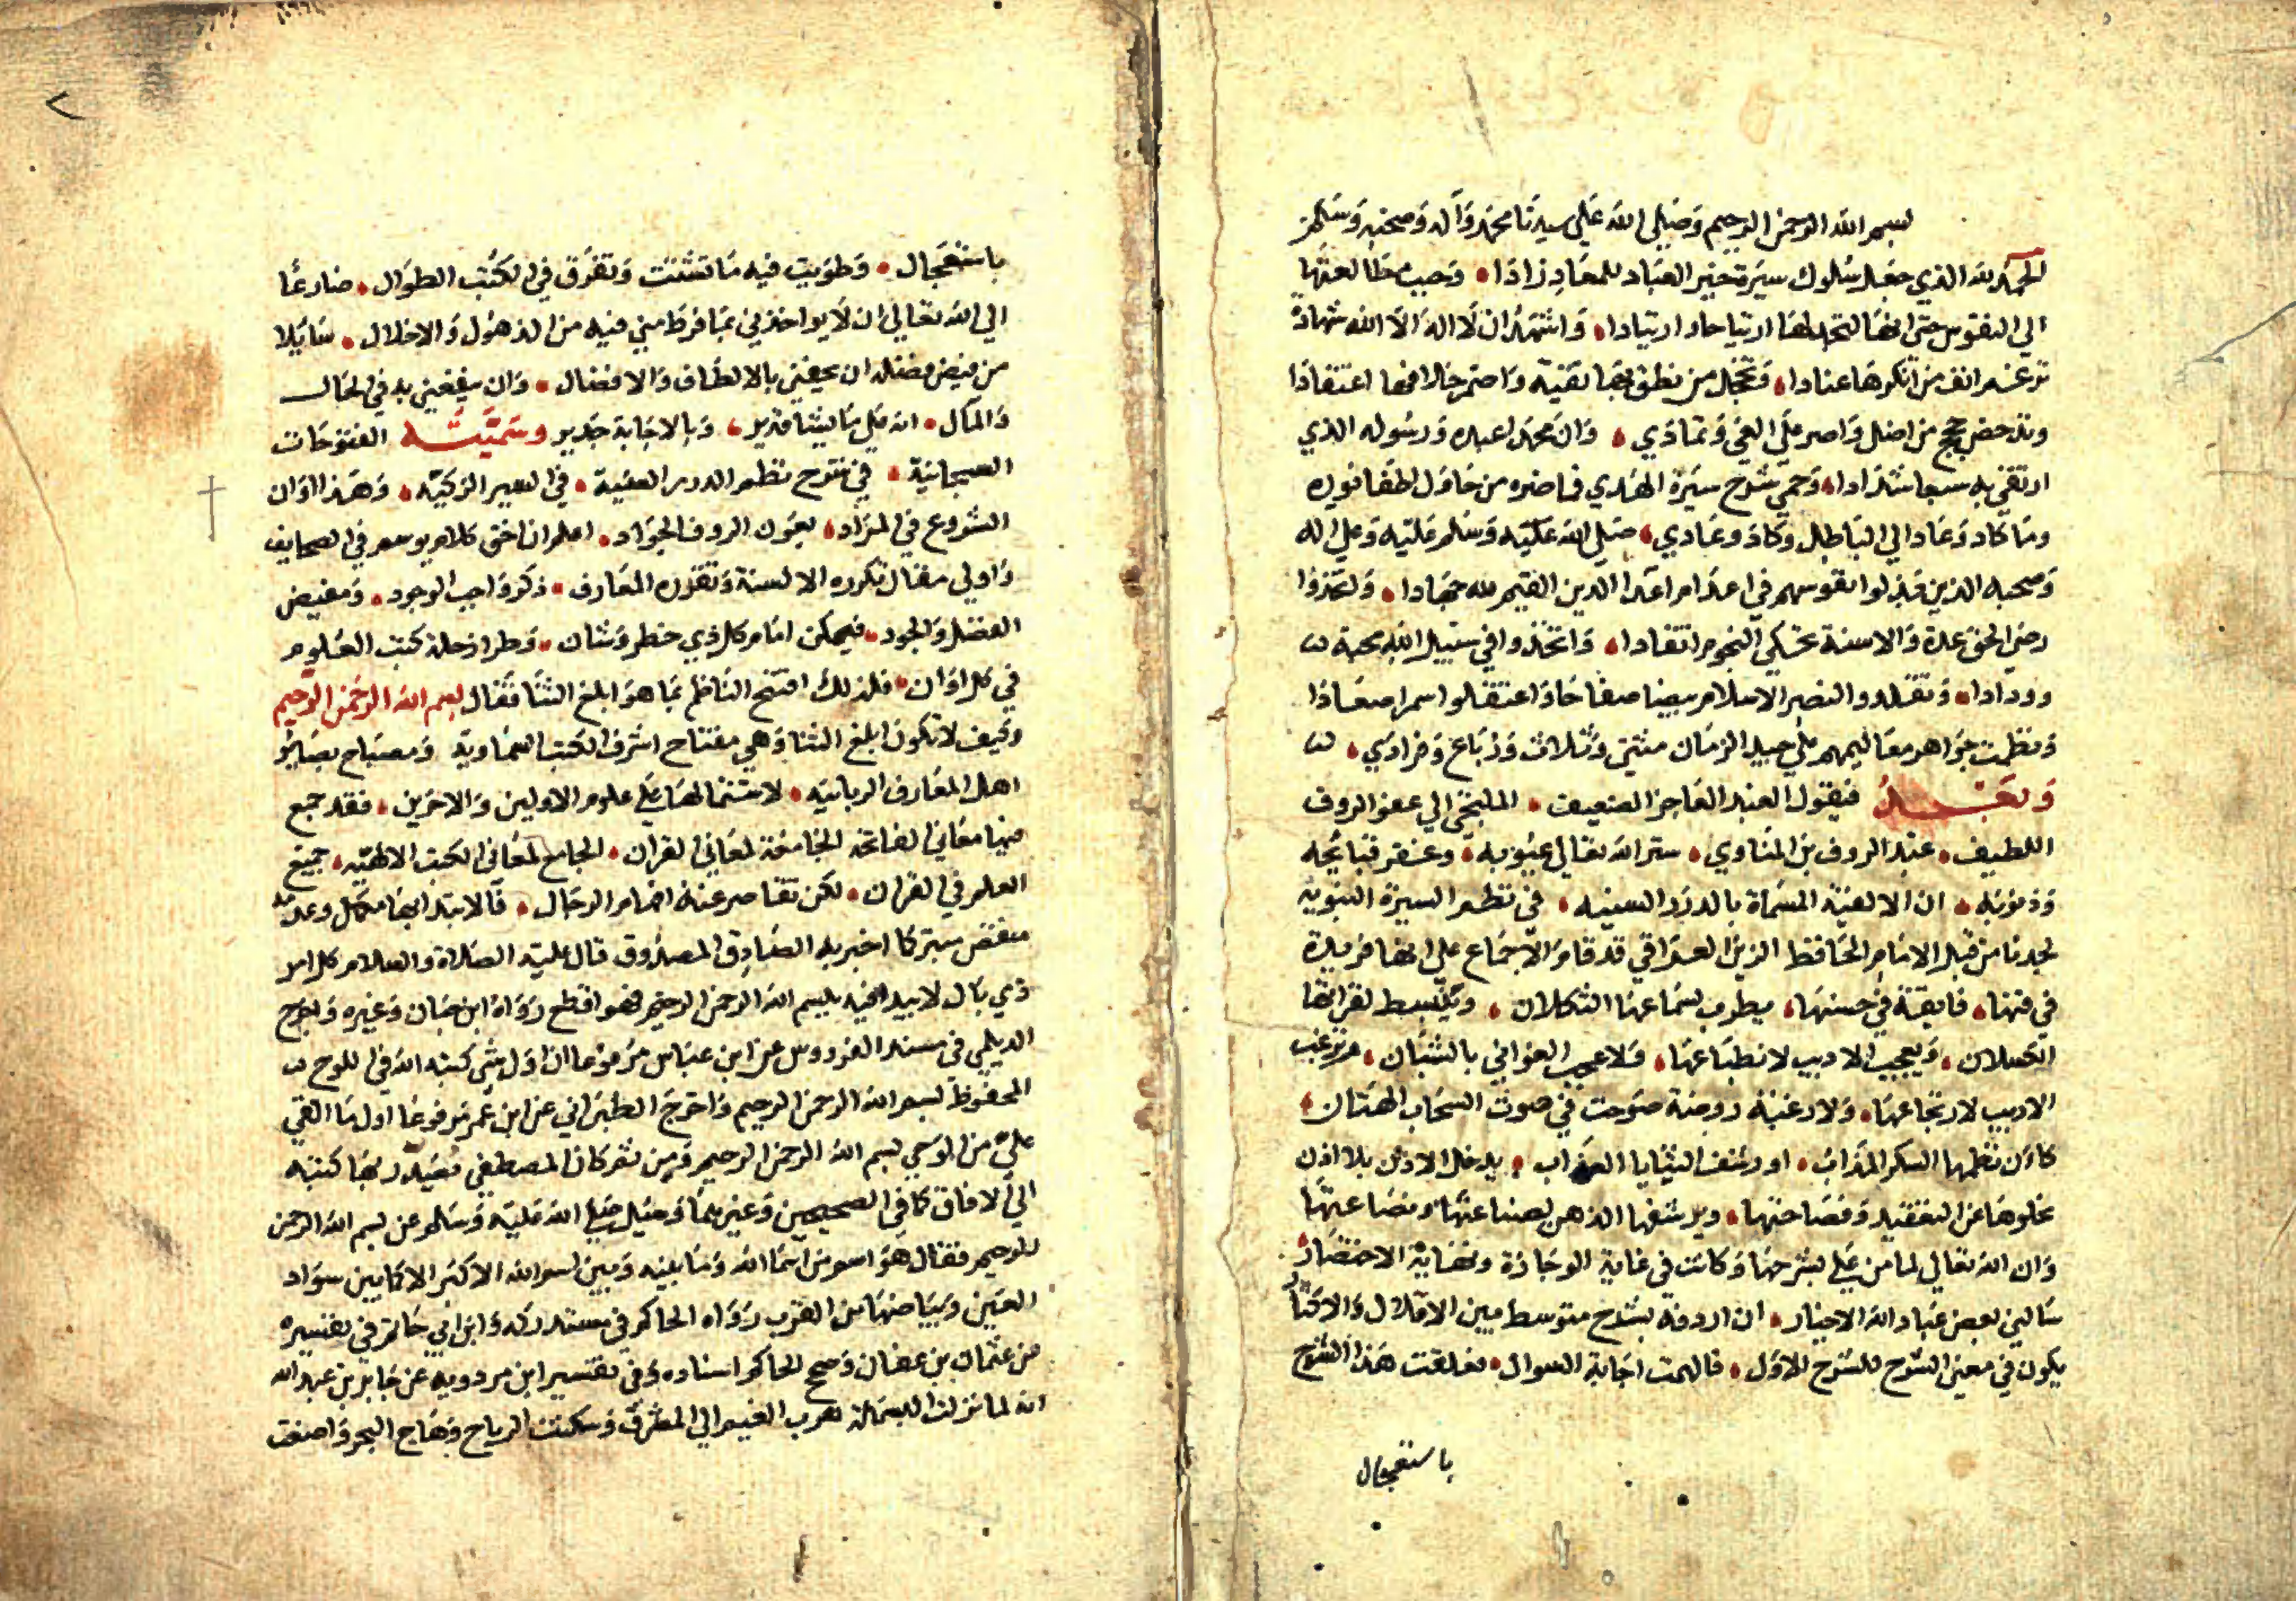 بسم الله الرحمن الرحيم وصلى الله على سيدنا محمد وآله وصحبه وسلم
الحمد لله الذي جعل سلوك سيرة خير العباد للمعاد زادا وحبب مطالعتها
الي النفوس حتي انها لتجد لها ارتياحا وارتيادا واشهد ان لا اله الا الله شهادة
ترغم انف من انكرها عنادا وتخجل من نطق بها تقية واضمر خلافها اعتقادا
وتدحض حجج من اضل واصر علي الغي وتمادي وان محمدا عبده ورسوله الذي
ارتقي به سبعا شدادا وحمي شرح سيرة الهدي فما ضره من حاول اطفا نوره
وما كاد وعاد الي الباطل وكاد وعادي صلي الله عليه وسلم عليه وعلي اله
وصحبه الذين بذلوا نفوسهم في اعدام اعدا الدين القيم لله جهادا
رضي الحق عدة والاسنة تحكي النجوم اتقادا واتخذوا في سبيل الله محبة
وودادا وتقلدوا لنصر الاسلام بيضا صفاحا واعتقلوا سمرا صعادا
ونظمت جواهر معاليهم علي جيد الزمان مثني وثلاث ورباع وفرادي
وبعد فيقول العبد العاجز الضعيف الملتجي الي عفو الروف
اللطيف عبد الروف بن المناوي ستر الله تعالي عيوبه وغفر قبائحه
وذنوبه ان الالفية المسماة بالدرر السنيه في نظم السيرة النبويه
لجدنا من قبل الامام الحافظ الزين العراقي قد قام الاجماع علي انها فريدة
في فنها فايقة في حسنها يطرب لسماعها الثكلان وينبسط لقرائتها
الكسلان ويعجب الاديب لانطباعها ولا عجب الغواني بالشبان ويرغب
الاريب لارتجاعها ولا رغبة روضة صوحت في صوت السحاب الهتان
كان نظمها السكر المذاب او رشف الثنايا العذاب يدخل الاذن بلا اذن
لخلوها عن التعقيد وفصاحتها ويرشفها الذهن لصناعتها ونصاعتها
وان الله تعالي لما من علي بشرحها وكانت في غاية الوجازة ونهاية الاختصار
سالني بعض عباد الله الاخيار ان اردفه بشرح متوسط بين الاقلال والاكثار
يكون في معني الشرح للشرح الاول فالهمت اجابة السوال فعلقت هذا الشرح
باستعجال
باستعجال وطويت فيه ما تشتت وتفرق في الكتب الطوال ضارعا
الي الله تعالي ان لا يواخذني بما فرط مني فيه من الذهول والاخلال سايلا
من فيض فضله ان يحفني بالالطاف والافضال وان ينفعني به في الحال
والمآل انه علي ما يشا قدير وبالاجابة جدير وسميته الفتوحات
السبحانية في شرح نظم الدرر السنية في السير الزكيه وهذا اوان
الشروع في المراد بعون الروف الجواد اعلم ان احق كلام يوسم في الصحايف
واولي مقال تكرره الالسنة وتقرره المعارف ذكر واجب الوجود ومفيض
الفضل والجود فيمكن امام كل ذي خطر وشان وطراز حلة كتب العلوم
في كل اوان فلذلك افتتح الناظم بما هو ابلغ الثنا فقال بسم الله الرحمن الرحيم
وكيف لا تكون ابلغ الثنا وهي مفتاح اشرف الكتب السماوية ومصباح بصائر
اهل المعارف الربانيه لاشتمالها علي علوم الاولين والاخرين فقد جمع
فيها معاني الفاتحة الجامعة لمعاني القران الجامع لمعاني الكتب الالهيه جميع
العلم في القران لكن تقاصر عنه افهام الرجال فالابتدا بها مكمل وعدمه
منقص سيما كما اخبر به الصادق المصدوق قال عليه الصلاة والسلام كل امر
ذي بال لا يبدا فيه ببسم الله الرحمن الرحيم فهو اقطع رواه ابن حبان وغيره واخرج
الديلمي في مسند الفردوس عن ابن عباس مرفوعا ان اول شي كتبه الله في اللوح
المحفوظ بسم الله الرحمن الرحيم واخرج الطبراني عن ابن عمر مرفوعا اول ما القي
علي من الوحي بسم الله الرحمن الرحيم ومن ثم كان المصطفي يصدر بها كتبه
الي الافاق كما في الصحيحين وغيرهما وسئل صلي الله عليه وسلم عن بسم الله الرحمن
الرحيم فقال هو اسم من اسما الله وما بينه وبين اسم الله الاكبر الا كما بين سواد
العين وبياضها من القرب رواه الحاكم في مستدركه وابن ابي حاتم في تفسيره
من عثمان بن عفان وصحح الحاكم اسناده وفي تفسير ابن مردويه عن جابر بن عبد الله
انه لما نزلت البسملة هرب الغيم الي المشرق وسكنت الرياح وهاج البحر واصغت